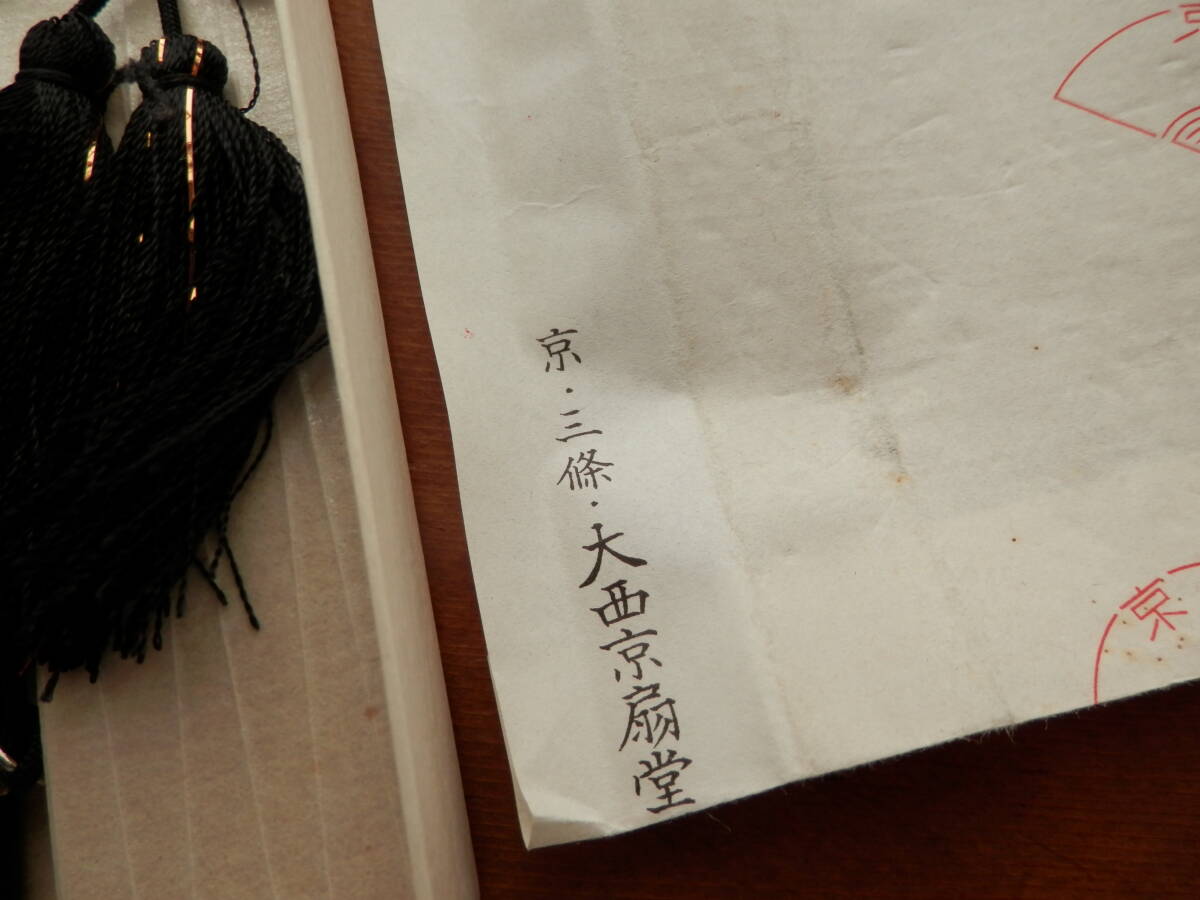 京・三條・大西京扇堂
京